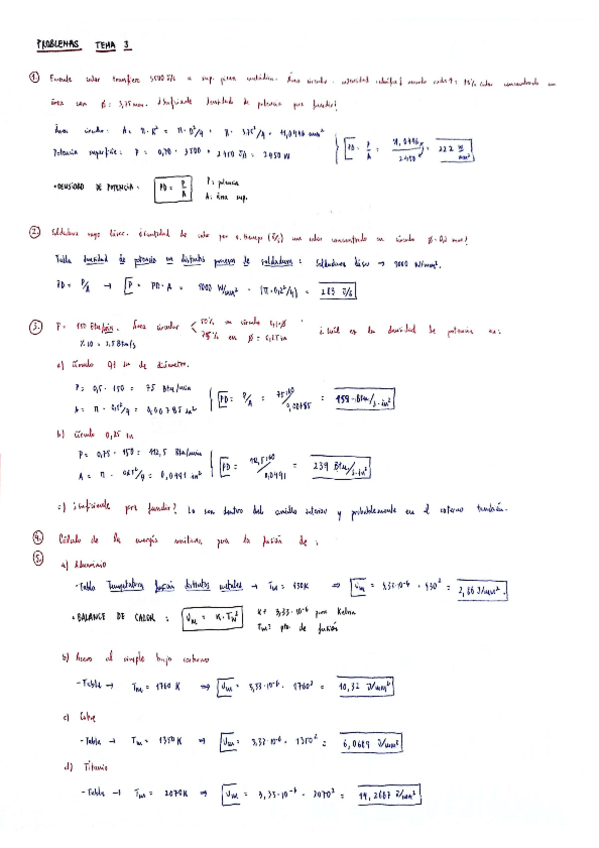 PROBLEMAS TEMA 3
① Fuente calor transfiere 3500 J/s a sup. pieza metálica. Área circular. intensidad calorífica varía 70% calor concentrado en
área con Ø: 3,75 mm. ¿Suficiente densidad de potencia para fundir?
Área círculo: A = π·R² = π·D²/4 = π·3,75²/4 = 11,0446 mm²
Potencia superficie: P = 0,70 · 3500 = 2450 J/s = 2450 W
PD = P/A = 11,0446/2450 = 222 W/mm²
• DENSIDAD DE POTENCIA: PD = P/A P: potencia
A: área sup.
② Soldadura rayo láser. ¿Cantidad de calor por u. tiempo (J/s) si calor concentrado en círculo Ø 0,2 mm?
Tabla densidad de potencia en distintos procesos de soldadura: Soldadura láser → 9000 W/mm².
PD = P/A → P = PD · A = 9000 W/mm² · (π·0,2²/4) = 283 J/s
③ P = 150 Btu/min. Área circular 50% en círculo 0,1 Ø
75% en Ø = 0,25 in
¿Cuál es la densidad de potencia en:
1/60 = 2,5 Btu/s
a) Círculo 0,1 in de diámetro.
P = 0,5 · 150 = 75 Btu/min
A = π · 0,1²/4 = 0,00785 in²
PD = P/A = 75:60/0,00785 = 159 Btu/s·in²
b) Círculo 0,25 in
P = 0,75 · 150 = 112,5 Btu/min
A = π · 0,25²/4 = 0,0491 in²
PD = 112,5:60/0,0491 = 239 Btu/s·in²
c) ¿Suficiente para fundir? Lo son dentro del anillo interior y probablemente en el externo también.
④ Cálculo de la energía unitaria para la fusión de:
⑤
a) Aluminio
- Tabla Temperatura fusión distintos metales → Tm = 930K ⇒ Um = 3,33·10⁻⁶ · 930² = 2,88 J/mm³.
• BALANCE DE CALOR: Um = K·Tm² K = 3,33·10⁻⁶ para Kelvin
Tm = pto de fusión
b) Acero al simple bajo carbono
- Tabla → Tm = 1760 K ⇒ Um = 3,33·10⁻⁶ · 1760² = 10,32 J/mm³
c) Cobre
- Tabla → Tm = 1350 K ⇒ Um = 3,33·10⁻⁶ · 1350² = 6,0689 J/mm³
d) Titanio
- Tabla → Tm = 2070K ⇒ Um = 3,33·10⁻⁶ · 2070² = 14,2687 J/mm³